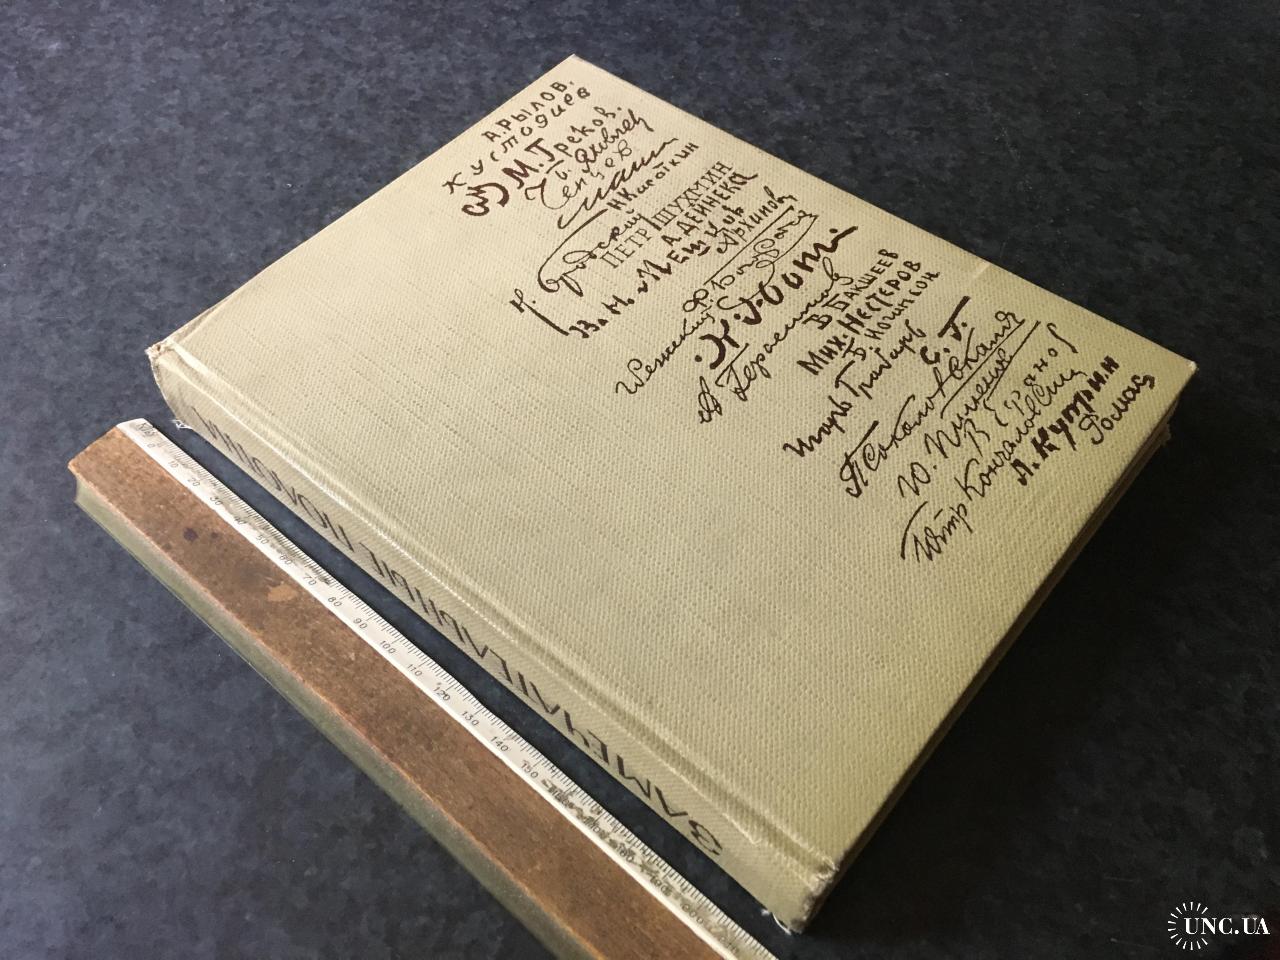 А. РЫЛОВ.
Кустодиев
М. Греков.
Б. Яковлев
Чепцев
Н Касаткин
И. Бродский
ПЕТР ШУХМИН
А. ДЕЙНЕКА
В. Н. Мешков
Архипов
Ф. Богород
К. Юон.
А Герасимов
В БАКШЕЕВ
МИХ. НЕСТЕРОВ
Б. ИОГАНСОН
Игорь Грабарь
С. Г.
П Соколовская
Ю. Пименов
Петр Кончаловский
А. КУПРИН
Ромас
ЗАМЕЧАТЕЛЬНЫЕ ПОЛОТНА
0 10 20 30 40 50 60 70 80 90 100 110 120 130 140 150
UNC.UA